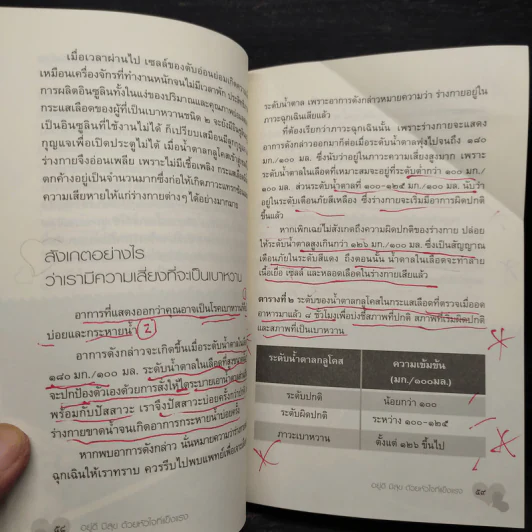 เมื่อเวลาผ่านไป เซลล์ของตับอ่อนอ่อนเกิดความ
เหมือนเครื่องจักรที่ทำงานหนักจนไม่มีเวลาพัก ประสิทธิ
การผลิตอินซูลินทั้งในแง่ของปริมาณและคุณภาพ
กระแสเลือดของผู้ที่เป็นเบาหวานชนิด ๒ จะยังมีอินซูลิน
เป็นอินซูลินที่ใช้งานไม่ได้ ก็เปรียบเสมือนมีลูกกุญแจ
กุญแจเพื่อเปิดประตูไม่ได้ เมื่อน้ำตาลกลูโคสเข้า
ร่างกายจึงอ่อนเพลีย เพราะไม่มีเชื้อเพลิง กระแสเลือด
ตกค้างอยู่เป็นจำนวนมากซึ่งก่อให้เกิดภาวะแทรกซ้อน
ความเสียหายให้แก่ร่างกายต่างๆ ได้อย่างมากมาย
สังเกตอย่างไร
ว่าเรามีความเสี่ยงที่จะเป็นเบาหวาน
อาการที่แสดงออกว่าคุณอาจเป็นโรคเบาหวาน
บ่อยและกระหายน้ำ 2
อาการดังกล่าวจะเกิดขึ้นเมื่อระดับน้ำตาล
๑๘๐ มก./๑๐๐ มล. ระดับน้ำตาลในเลือดที่สูง
จะปกป้องตัวเองด้วยการสั่งให้ไตระบายเอาน้ำตาล
พร้อมกับปัสสาวะ เราจึงปัสสาวะบ่อยครั้งกว่า
ร่างกายขาดน้ำจนเกิดอาการกระหายน้ำบ่อยครั้ง
หากพบอาการดังกล่าว นั่นหมายความว่าร่างกาย
ฉุกเฉินให้เราทราบ ควรรีบไปพบแพทย์เพื่อ
๕๘ อยู่ดี มีสุข ด้วยหัวใจที่แข็งแรง
ระดับน้ำตาล เพราะอาการดังกล่าวหมายความว่า ร่างกายอยู่ใน
ภาวะฉุกเฉินเสียแล้ว
ที่ต้องเรียกว่าภาวะฉุกเฉินนั้น เพราะร่างกายจะแสดง
อาการดังกล่าวออกมาก็ต่อเมื่อระดับน้ำตาลพุ่งไปจนถึง ๑๘๐
มก./๑๐๐ มล. ซึ่งนับว่าอยู่ในภาวะความเสี่ยงสูงมาก เพราะ
ระดับน้ำตาลในเลือดที่เหมาะสมจะอยู่ที่ระดับต่ำกว่า ๑๐๐ มก./
๑๐๐ มล. ส่วนระดับน้ำตาลที่ ๑๐๐-๑๒๕ มก./๑๐๐ มล. นับว่า
อยู่ในระดับเตือนภัยสีเหลือง ซึ่งร่างกายจะเริ่มมีอาการผิดปกติ
ขึ้นแล้ว
หากเพิกเฉยไม่สังเกตถึงความผิดปกติของร่างกาย ปล่อย
ให้ระดับน้ำตาลสูงเกินกว่า ๑๒๖ มก./๑๐๐ มล. ซึ่งเป็นสัญญาณ
เตือนภัยในระดับสีแดง ถึงตอนนั้น น้ำตาลในเลือดจะทำลาย
เนื้อเยื่อ เซลล์ และหลอดเลือดในร่างกายเสียแล้ว
ตารางที่ ๒ ระดับของน้ำตาลกลูโคสในกระแสเลือดที่ตรวจเมื่ออด
อาหารมาแล้ว ๘ ชั่วโมงเพื่อบ่งชี้สภาพที่ปกติ สภาพที่เริ่มผิดปกติ
และสภาพที่เป็นเบาหวาน
ระดับน้ำตาลกลูโคส ความเข้มข้น
(มก./๑๐๐มล.)
ระดับปกติ น้อยกว่า ๑๐๐
ระดับผิดปกติ ระหว่าง ๑๐๐-๑๒๕
ภาวะเบาหวาน ตั้งแต่ ๑๒๖ ขึ้นไป
อยู่ดี มีสุข ด้วยหัวใจที่แข็งแรง ๕๙